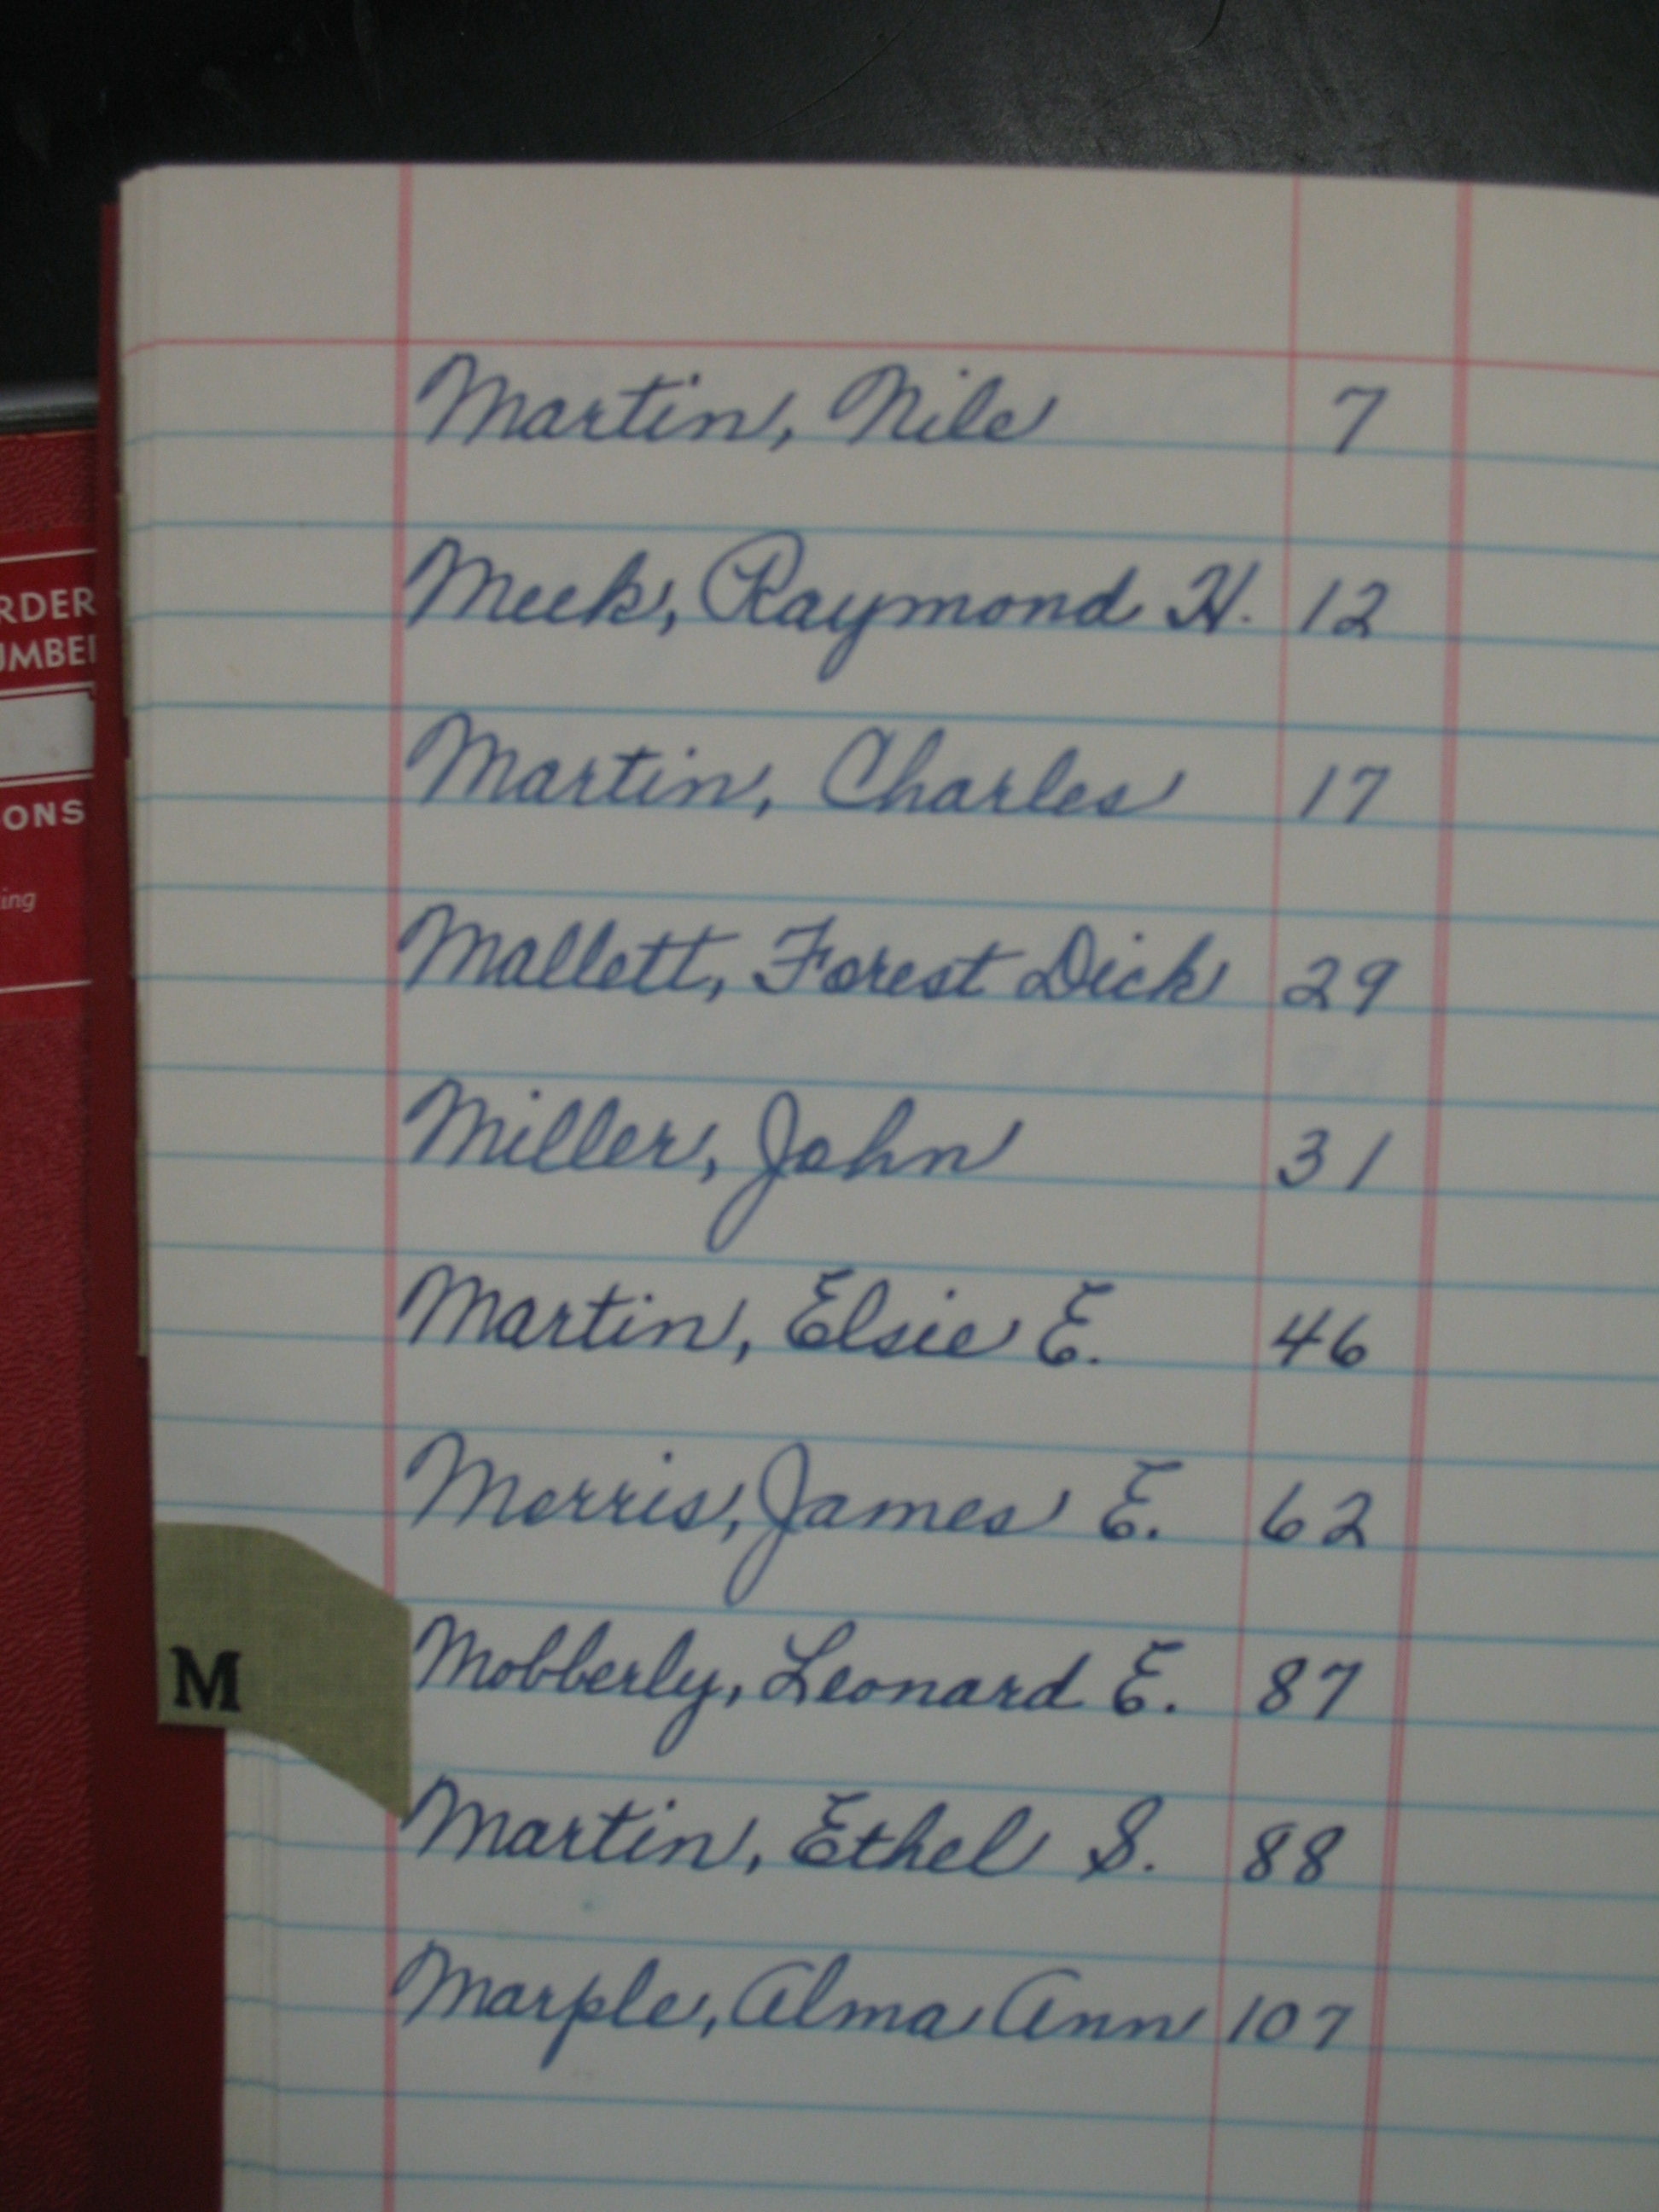 Martin, Nile 7
Meek, Raymond H. 12
Martin, Charles 17
Mallett, Forest Dick 29
Miller, John 31
Martin, Elsie E. 46
Morris, James E. 62
Mobberly, Leonard E. 87
M
Martin, Ethel S. 88
Marple, Alma Ann 107
RDER
UMBE
ONS
ing